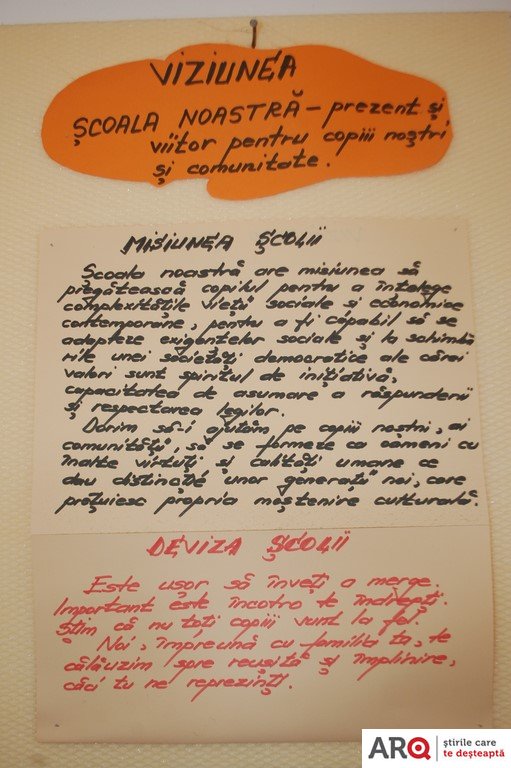 VIZIUNEA
ȘCOALA NOASTRĂ - prezent și
viitor pentru copiii noștri
și comunitate.
MISIUNEA ȘCOLII
Școala noastră are misiunea să
pregătească copilul pentru a înțelege
complexitățile vieții sociale și economice
contemporane, pentru a fi capabil să se
adapteze exigențelor sociale și la schimbă
rile unei societăți democratice ale cărei
valori sunt spiritul de inițiativă,
capacitatea de asumare a răspunderii
și respectarea legilor.
Dorim să-i ajutăm pe copiii noștri, ai
comunității, să se formeze ca oameni cu
înalte virtuți și calități umane ce
dau distincție unor generații noi, care
prețuiesc propria moștenire culturală.
DEVIZA ȘCOLII
Este ușor să înveți a merge.
Important este încotro te îndrepți.
Știm că nu toți copiii sunt la fel.
Noi, împreună cu familia ta, te
călăuzim spre reușită și împlinire,
căci tu ne reprezinți.
ARQ știrile care
te deșteaptă